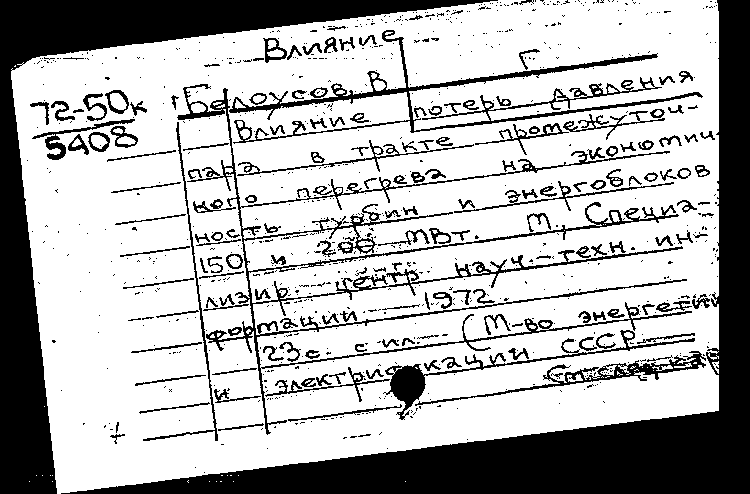 Влияние
72-50к
5408
Белоусов, В Г
Влияние потерь давления
пара в тракте промежуточ-
ного перегрева на экономич-
ность турбин и энергоблоков
150 и 200 МВт. М., Специа-
лизир. центр науч.-техн. ин-
формации, 1972.
23с. с ил. (М-во энергетики
и электрификации СССР
См. след. кар